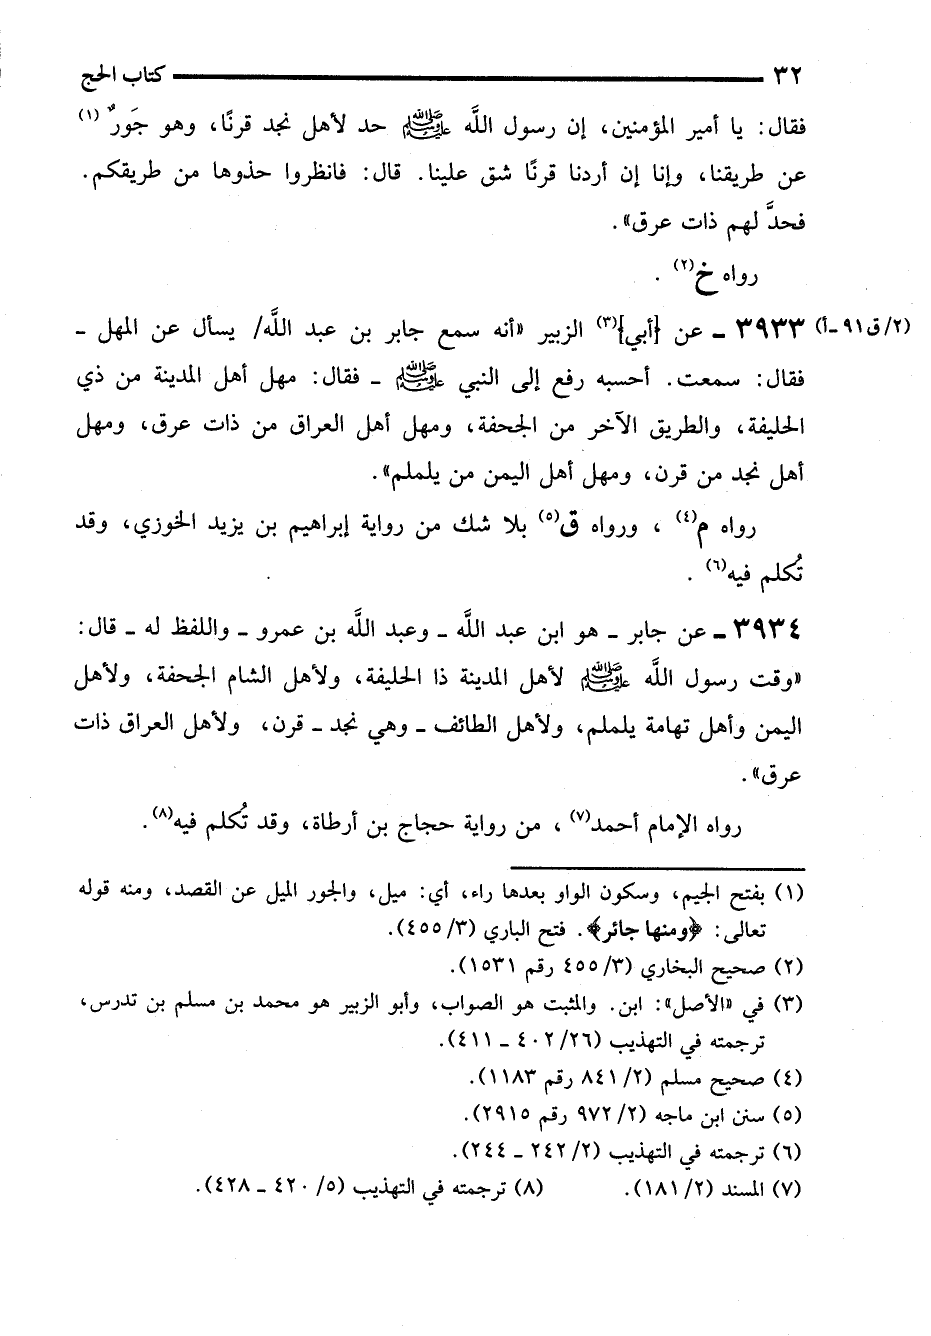 ٣٢ كتاب الحج
فقال: يا أمير المؤمنين، إن رسول اللَّه ﷺ حد لأهل نجد قرنًا، وهو جَورٌ(١)
عن طريقنا، وإنا إن أردنا قرنًا شق علينا. قال: فانظروا حذوها من طريقكم.
فحدَّ لهم ذات عرق».
رواه خ(٢) .
(٢/ق٩١-أ) ٣٩٣٣ ـ عن [أبي](٣) الزبير «أنه سمع جابر بن عبد اللَّه/ يسأل عن المهل ـ
فقال: سمعت. أحسبه رفع إلى النبي ﷺ ـ فقال: مهل أهل المدينة من ذي
الحليفة، والطريق الآخر من الجحفة، ومهل أهل العراق من ذات عرق، ومهل
أهل نجد من قرن، ومهل أهل اليمن من يلملم».
رواه م(٤) ، ورواه ق(٥) بلا شك من رواية إبراهيم بن يزيد الخوزي، وقد
تُكلم فيه(٦) .
٣٩٣٤ ـ عن جابر ـ هو ابن عبد اللَّه ـ وعبد اللَّه بن عمرو ـ واللفظ له ـ قال:
«وقت رسول اللَّه ﷺ لأهل المدينة ذا الحليفة، ولأهل الشام الجحفة، ولأهل
اليمن وأهل تهامة يلملم، ولأهل الطائف ـ وهي نجد ـ قرن، ولأهل العراق ذات
عرق».
رواه الإمام أحمد(٧) ، من رواية حجاج بن أرطاة، وقد تُكلم فيه(٨).
(١) بفتح الجيم، وسكون الواو بعدها راء، أي: ميل، والجور الميل عن القصد، ومنه قوله
تعالى: ﴿ومنها جائر﴾. فتح الباري (٣/ ٤٥٥).
(٢) صحيح البخاري (٣/ ٤٥٥ رقم ١٥٣١).
(٣) في «الأصل»: ابن. والمثبت هو الصواب، وأبو الزبير هو محمد بن مسلم بن تدرس،
ترجمته في التهذيب (٢٦/ ٤٠٢ ـ ٤١١).
(٤) صحيح مسلم (٢/ ٨٤١ رقم ١١٨٣).
(٥) سنن ابن ماجه (٢/ ٩٧٢ رقم ٢٩١٥).
(٦) ترجمته في التهذيب (٢/ ٢٤٢ ـ ٢٤٤).
(٧) المسند (٢/ ١٨١). (٨) ترجمته في التهذيب (٥/ ٤٢٠ ـ ٤٢٨).